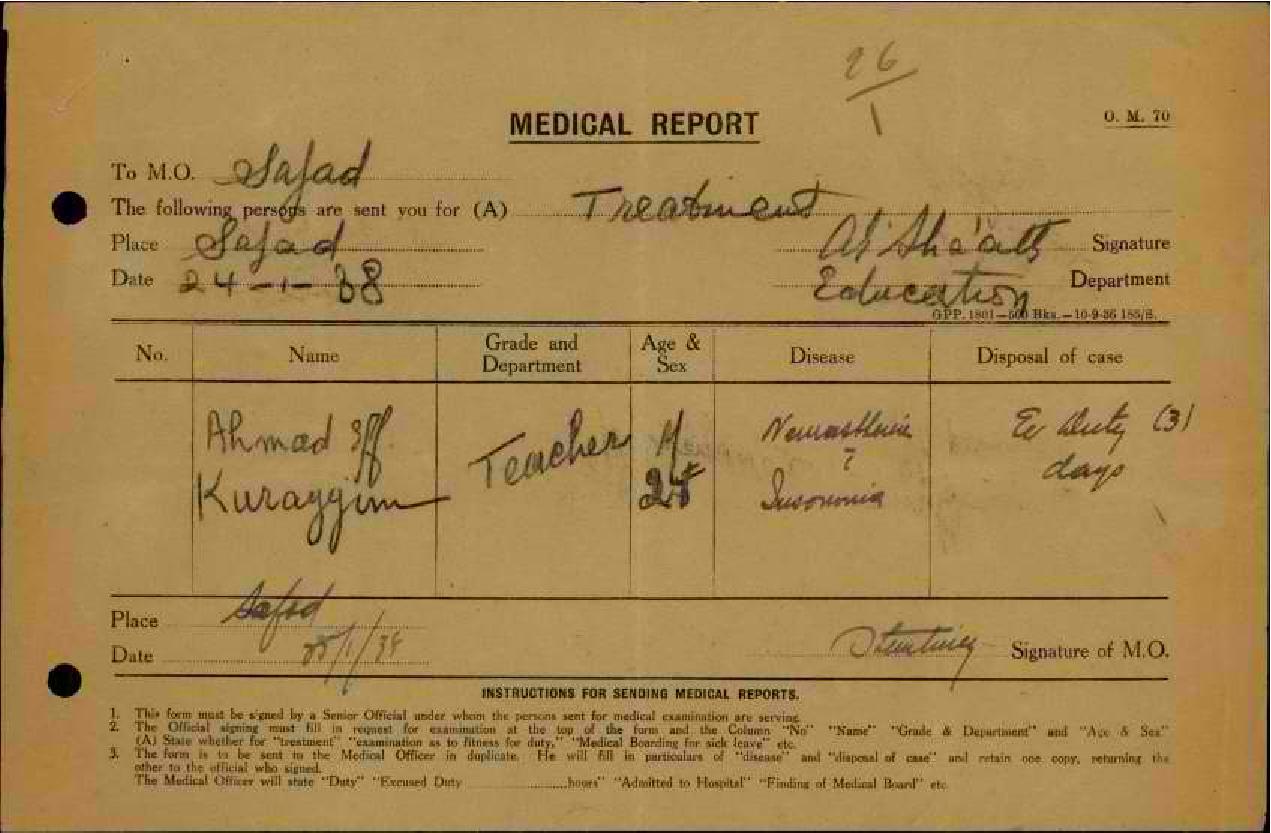 26/1
MEDICAL REPORT
O. M. 70
To M.O. Safad
The following persons are sent you for (A) Treatment
Place Safad
Signature
Date 24-1-38
Education Department
GPP. 1801—500 Bks.—10-9-36 155/S.
No. Name Grade and Department Age & Sex Disease Disposal of case
Ahmad Eff Teacher M Neurasthenia Ex Duty (3)
? days
Kurayyim 25 Insomnia
Place Safad
Date 25/1/38 Signature of M.O.
INSTRUCTIONS FOR SENDING MEDICAL REPORTS.
1. This form must be signed by a Senior Official under whom the persons sent for medical examination are serving.
2. The Official signing must fill in request for examination at the top of the form and the Column "No" "Name" "Grade & Department" and "Age & Sex"
(A) State whether for "treatment" "examination as to fitness for duty," "Medical Boarding for sick leave" etc.
3. The form is to be sent to the Medical Officer in duplicate. He will fill in particulars of "disease" and "disposal of case" and retain one copy, returning the
other to the official who signed.
The Medical Officer will state "Duty" "Excused Duty ..................hours" "Admitted to Hospital" "Finding of Medical Board" etc.